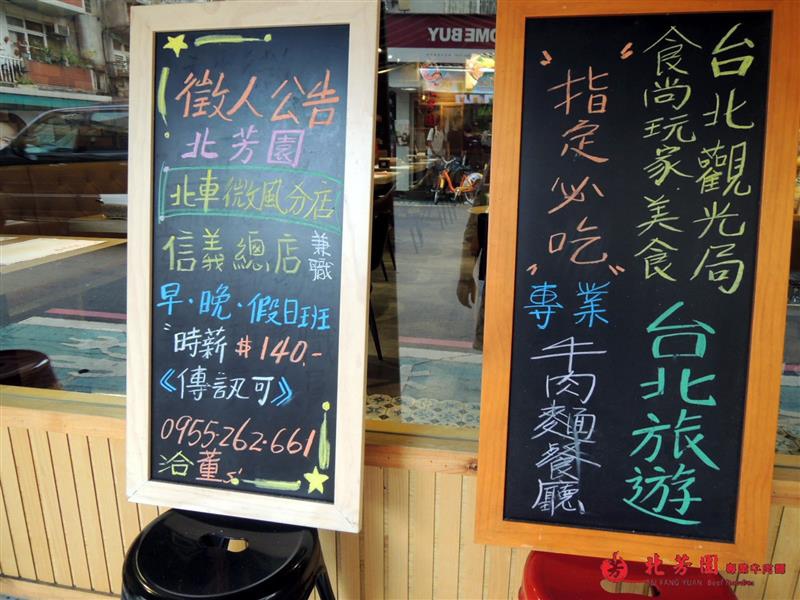 徵人公告
北芳園
北車微風分店
信義總店 兼職
早·晚·假日班
"時薪 $140.-
《傳訊可》
0955-262-661
洽董s'
台北觀光局
食尚玩家·美食
"指定必吃"
台北旅遊
專業
牛肉麵餐廳
HOME BUY
北芳園 專業牛肉麵
BEI FANG YUAN Beef Noodles